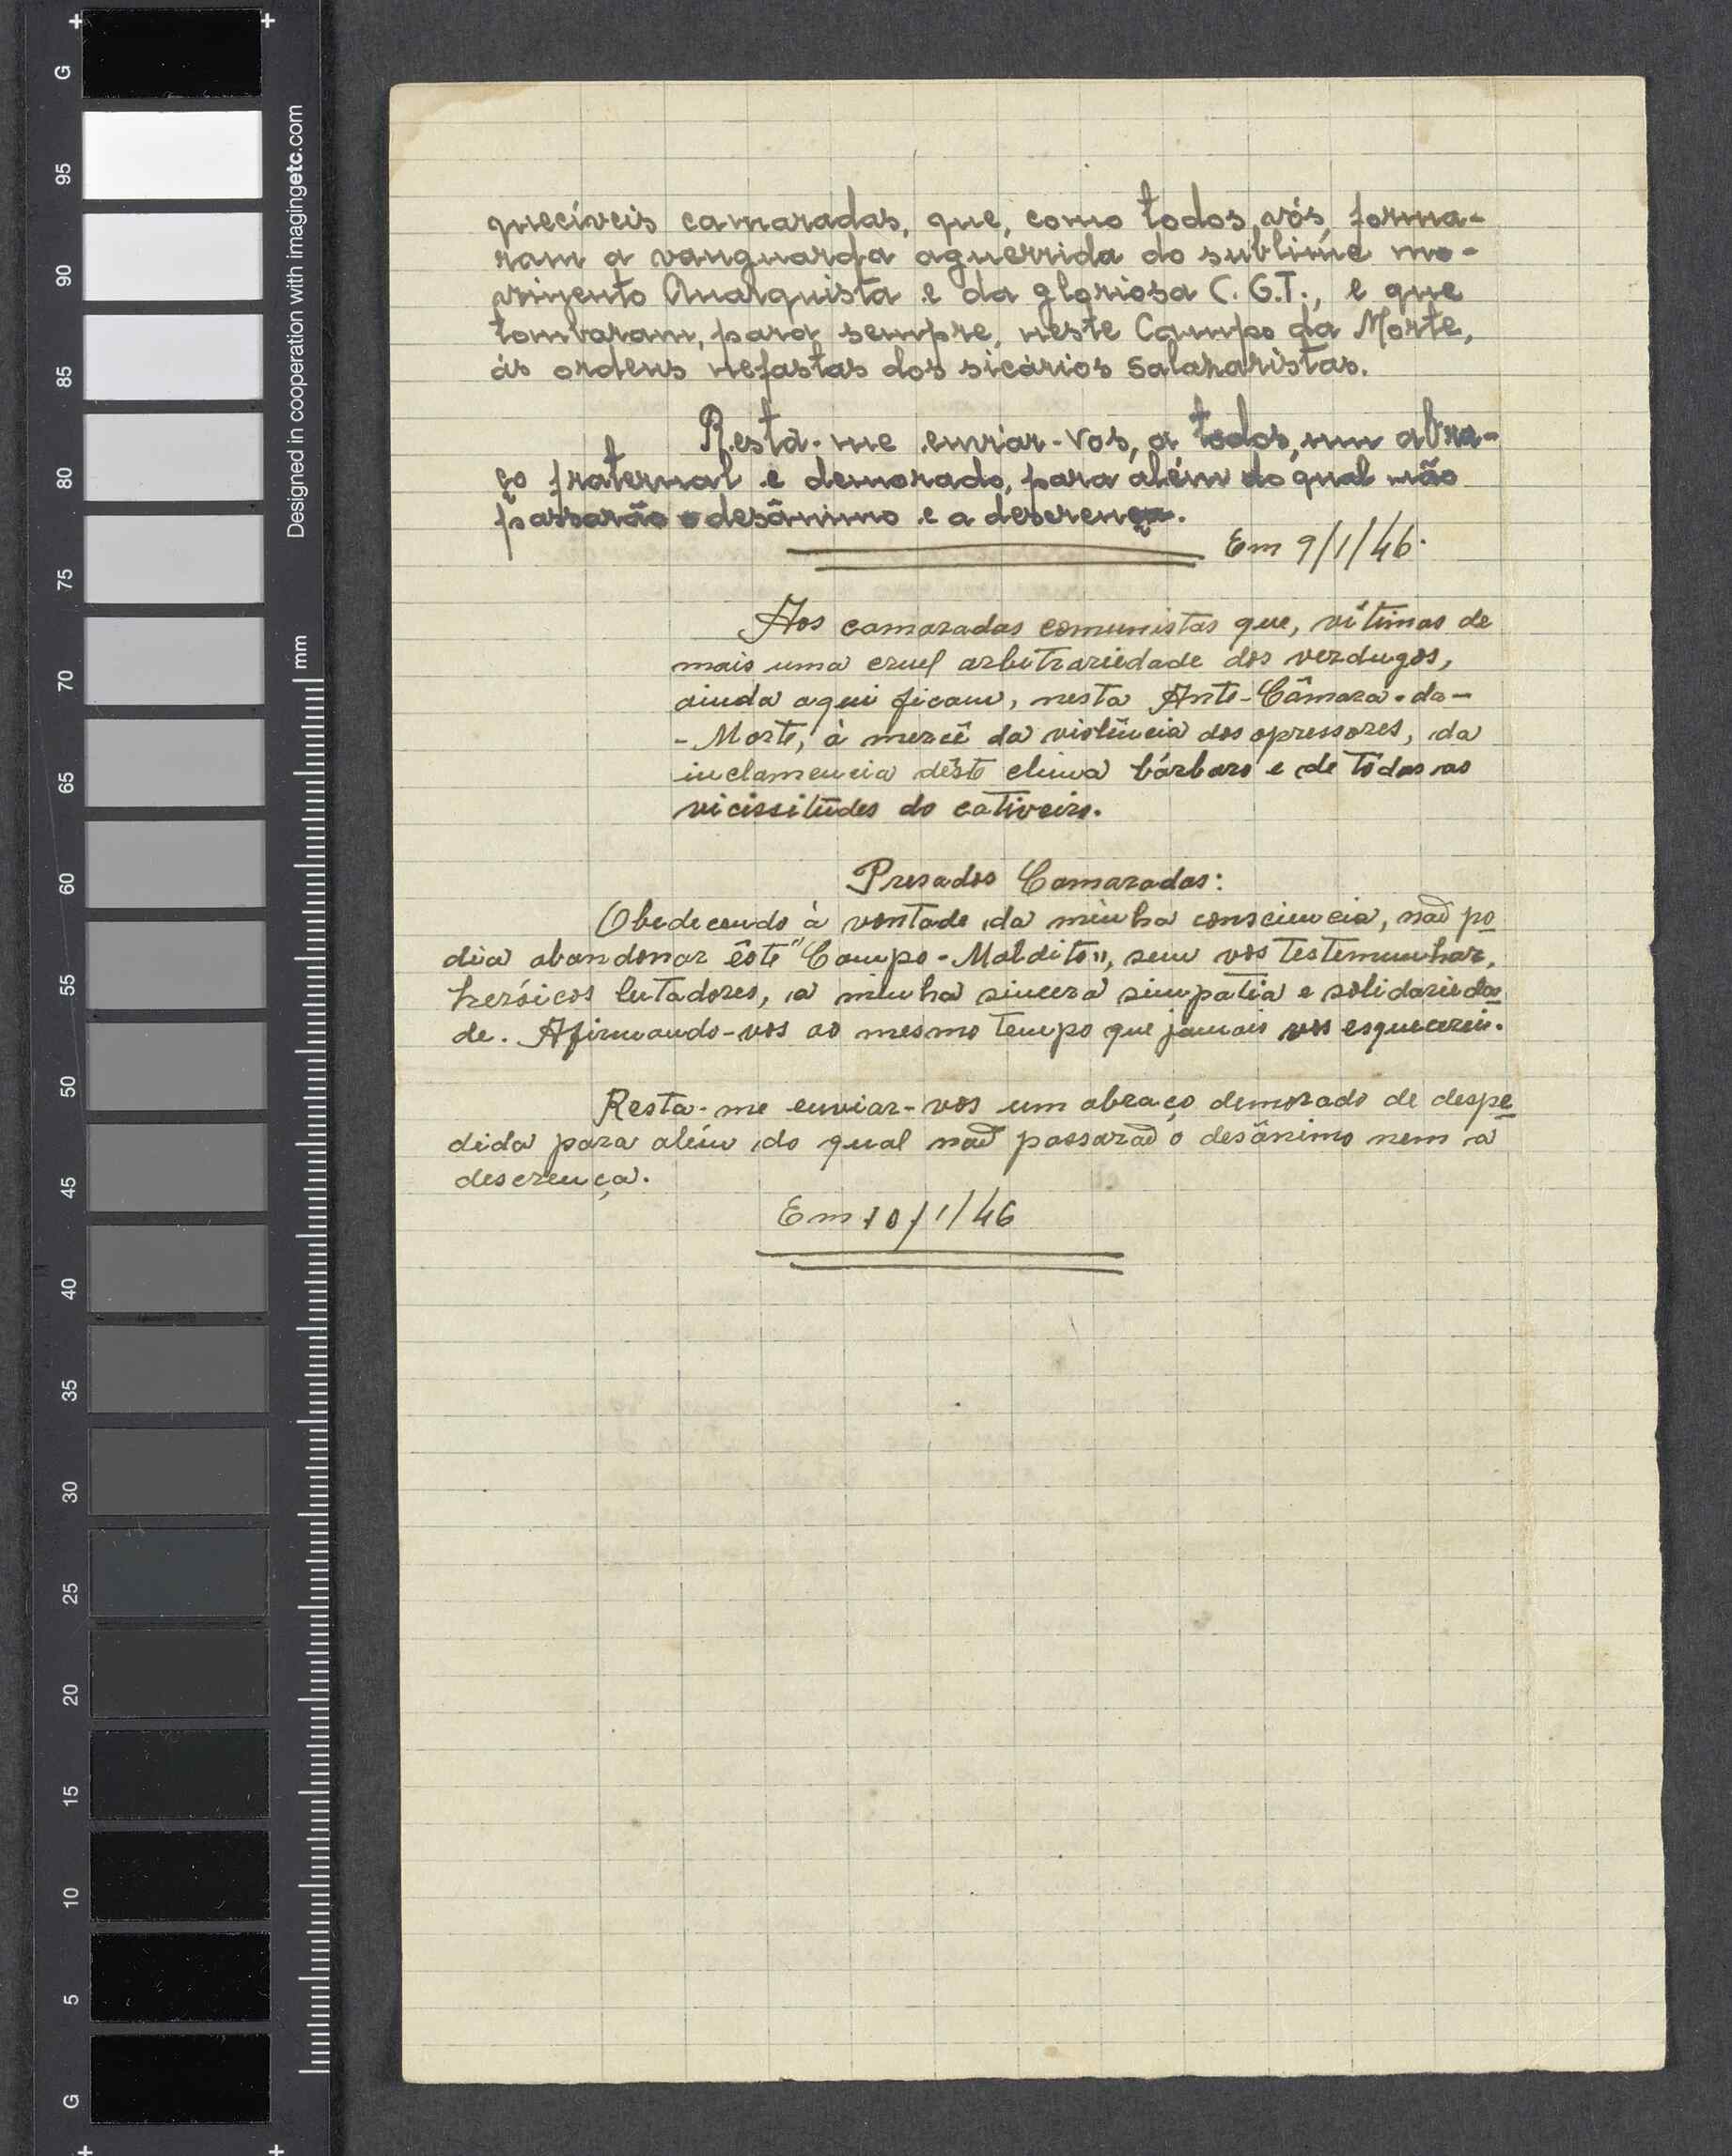 quecíveis camaradas, que, como todos vós, forma-
ram a vanguarda aguerrida do sublime mo-
vimento Anarquista e da gloriosa C.G.T., e que
tombaram, para sempre, neste Campo da Morte,
ás ordens nefastas dos sicários salazaristas.
Resta-me enviar-vos, a todos, um abra-
ço fraternal e demorado, para além do qual não
passarão o desânimo e a descrença.
Em 9/1/46.
Aos camaradas comunistas que, vítimas de
mais uma cruel arbitrariedade dos verdugos,
ainda aqui ficam, nesta Ante-Câmara-da-
-Morte, à mercê da violência dos opressores, da
inclamencia dêste clima bárbaro e de tôdas as
vicissitudes do cativeiro.
Presados Camaradas:
Obedecendo à vontade da minha consciencia, não po
dia abandonar êste "Campo-Maldito", sem vos testemunhar,
heróicos lutadores, a minha sincera simpatia e solidarieda
de. Afirmando-vos ao mesmo tempo que jamais vos esquecerei.
Resta-me enviar-vos um abraço demorado de despe
dida para além do qual não passarão o desânimo nem a
descrença.
Em 10/1/46
G
95
90
85
80
75
70
65
60
55
50
45
40
35
30
25
20
15
10
5
G
Designed in cooperation with imagingetc.com
mm